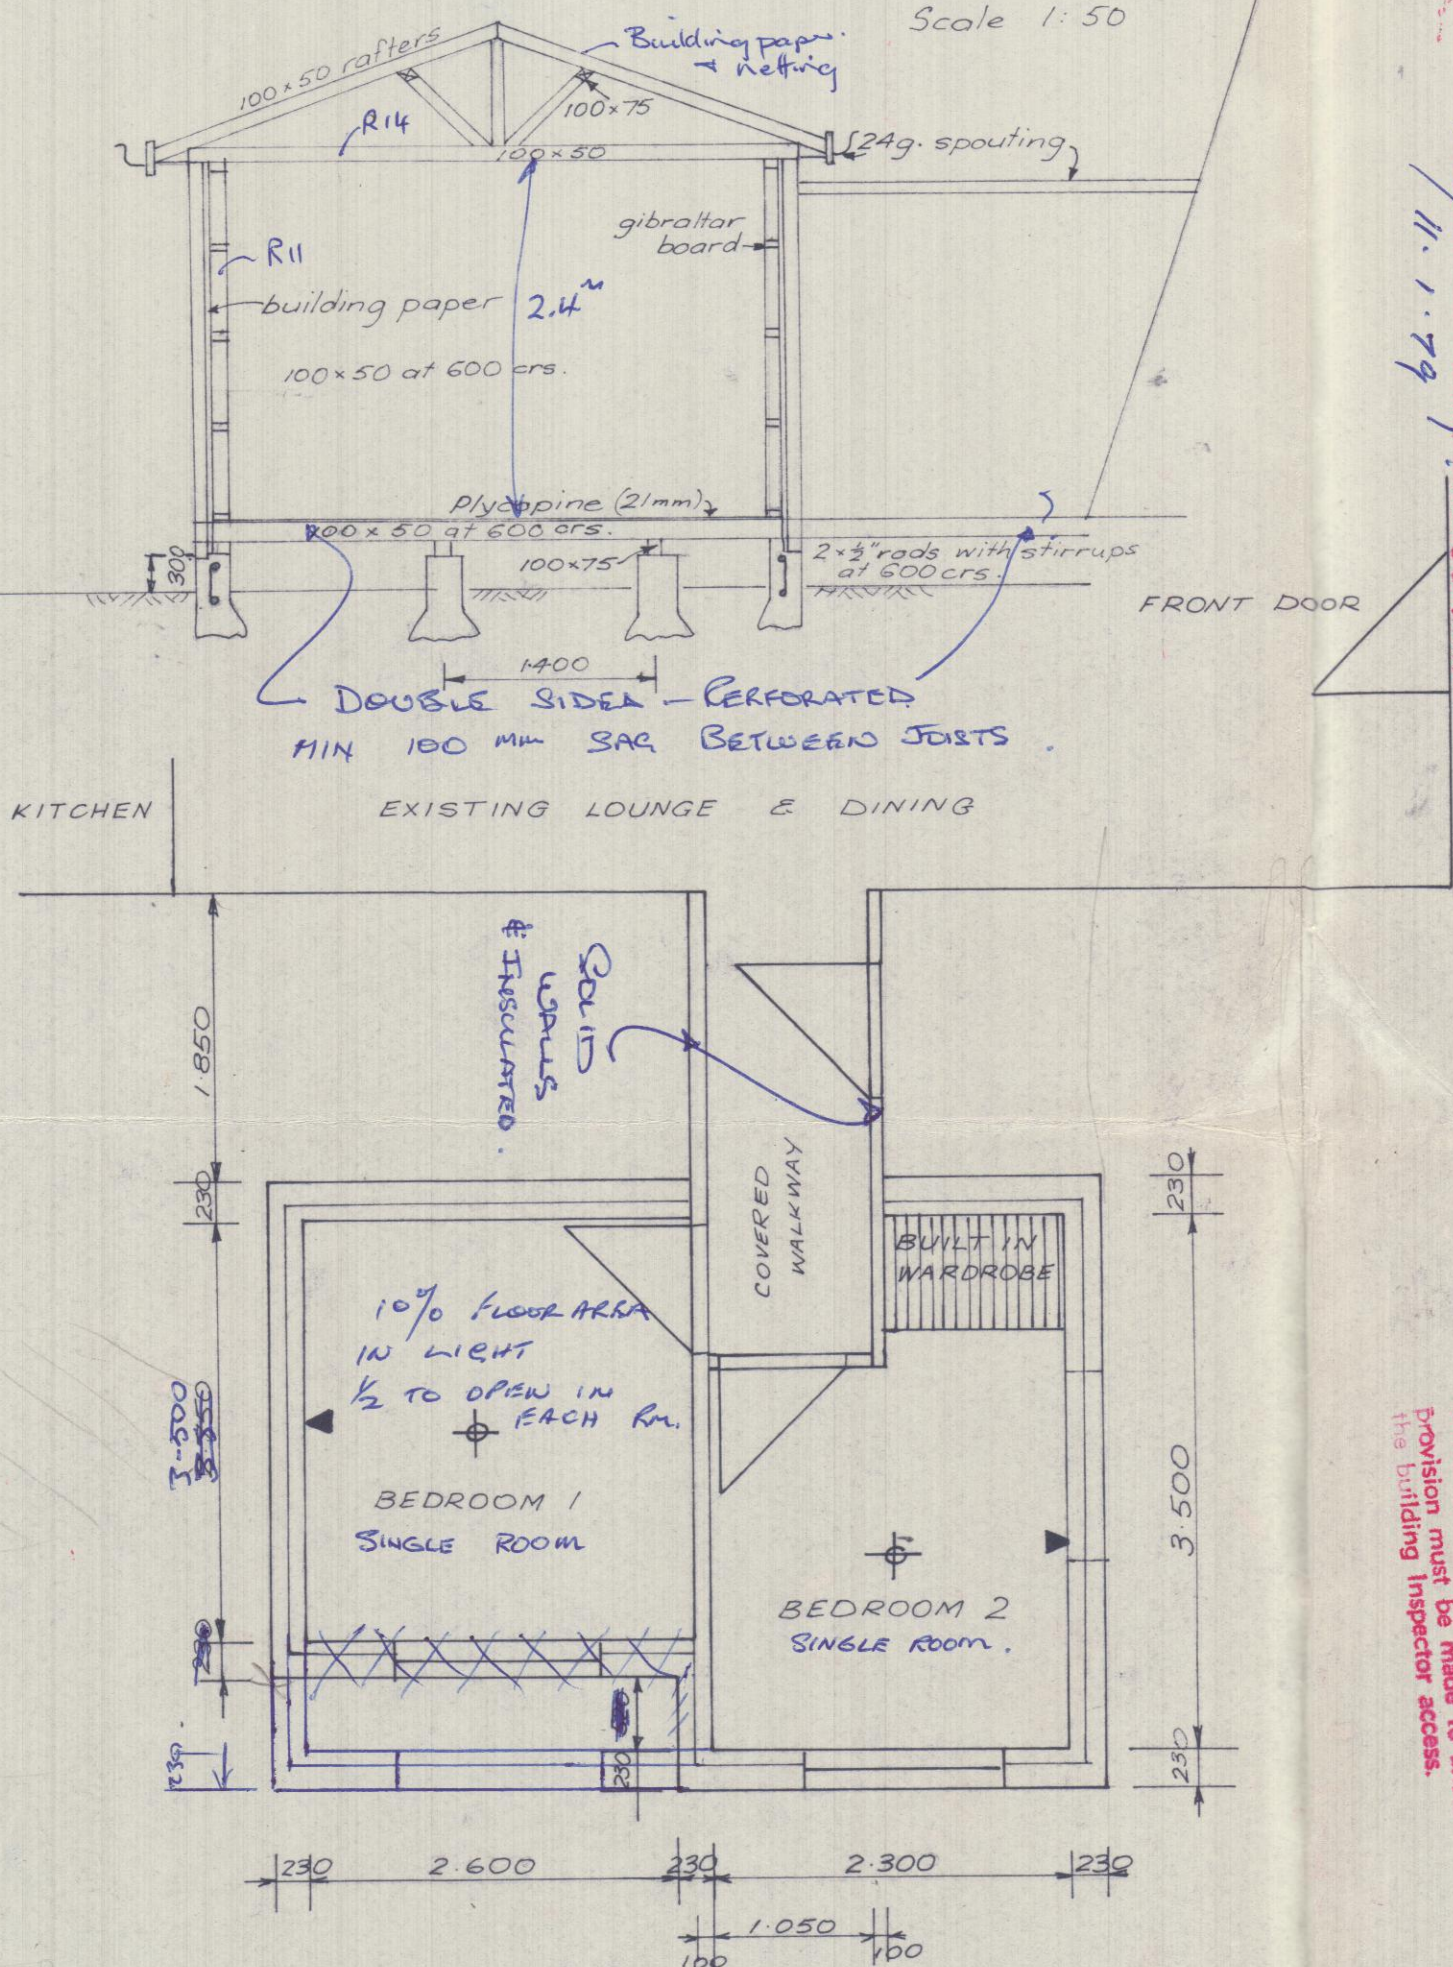 Scale 1:50
100×50 rafters
Building paper
+ netting
R14
100×75
100×50
24g. spouting
gibraltar
board
R11
building paper
2.4m
100×50 at 600 crs.
11.1.79
Plycopine (21mm)
100×50 at 600 crs.
300
100×75
2×½" rods with stirrups
at 600 crs.
FRONT DOOR
1·400
DOUBLE SIDED - PERFORATED
MIN 100 MM SAG BETWEEN JOISTS.
KITCHEN
EXISTING LOUNGE & DINING
SOLID
WALLS
& INSULATED.
1·850
230
230
COVERED
WALKWAY
BUILT IN
WARDROBE
10% FLOOR AREA
IN LIGHT
½ TO OPEN IN
EACH RM.
3·500
BEDROOM 1
SINGLE ROOM
3·500
BEDROOM 2
SINGLE ROOM.
provision must be made to
the building inspector access.
230
230
230
230
230
2·600
230
2·300
230
1·050
100
100